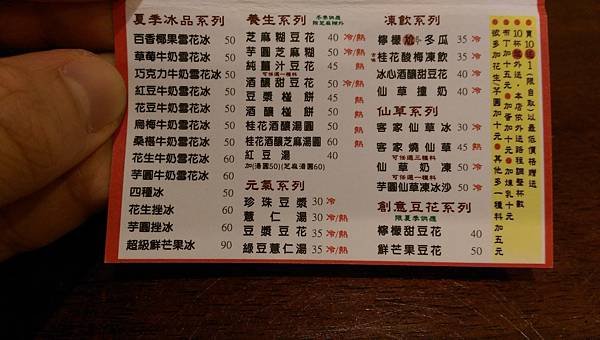 夏季冰品系列
百香椰果雪花冰 50
草莓牛奶雪花冰 50
巧克力牛奶雪花冰 50
紅豆牛奶雪花冰 50
花豆牛奶雪花冰 50
烏梅牛奶雪花冰 50
桑椹牛奶雪花冰 50
花生牛奶雪花冰 60
芋圓牛奶雪花冰 60
四種冰 50
花生挫冰 50
芋圓挫冰 60
超級鮮芒果冰 90
養生系列 冬季供應 限芝麻糊外
芝麻糊豆花 40 冷/熱
芋圓芝麻糊 50 冷/熱
純薑汁豆花 40 熱
可任選一種料
酒釀甜豆花 50 冷/熱
豆漿椪餅 45 熱
酒釀椪餅 50 熱
桂花酒釀湯圓 50 熱
桂花酒釀芝麻湯圓 60 熱
紅豆湯 40
加(湯圓50)(芝麻湯圓60)
元氣系列
珍珠豆漿 30 冷
薏仁湯 30 冷/熱
豆漿豆花 35 冷/熱
綠豆薏仁湯 35 冷/熱
凍飲系列
檸檬 冬瓜 35 冷
桂花酸梅凍飲 35 冷
冰心酒釀甜豆花 40 冷
仙草撞奶 40 冷
仙草系列
客家仙草冰 30 冷
客家燒仙草 45 熱
可任選三種料
仙草奶凍 50 冷
可任選一種料
芋圓仙草凍冰沙 50 冷
創意豆花系列
限夏季供應
檸檬甜豆花 40
鮮芒果豆花 50
買10送1(限自取以最低價格贈送)
10杯外送,本店依外送路程調整杯數
布丁加十五元●加香加十元●加煉乳十元
欲多加花生/芋圓加十元●其他多一種料加五元